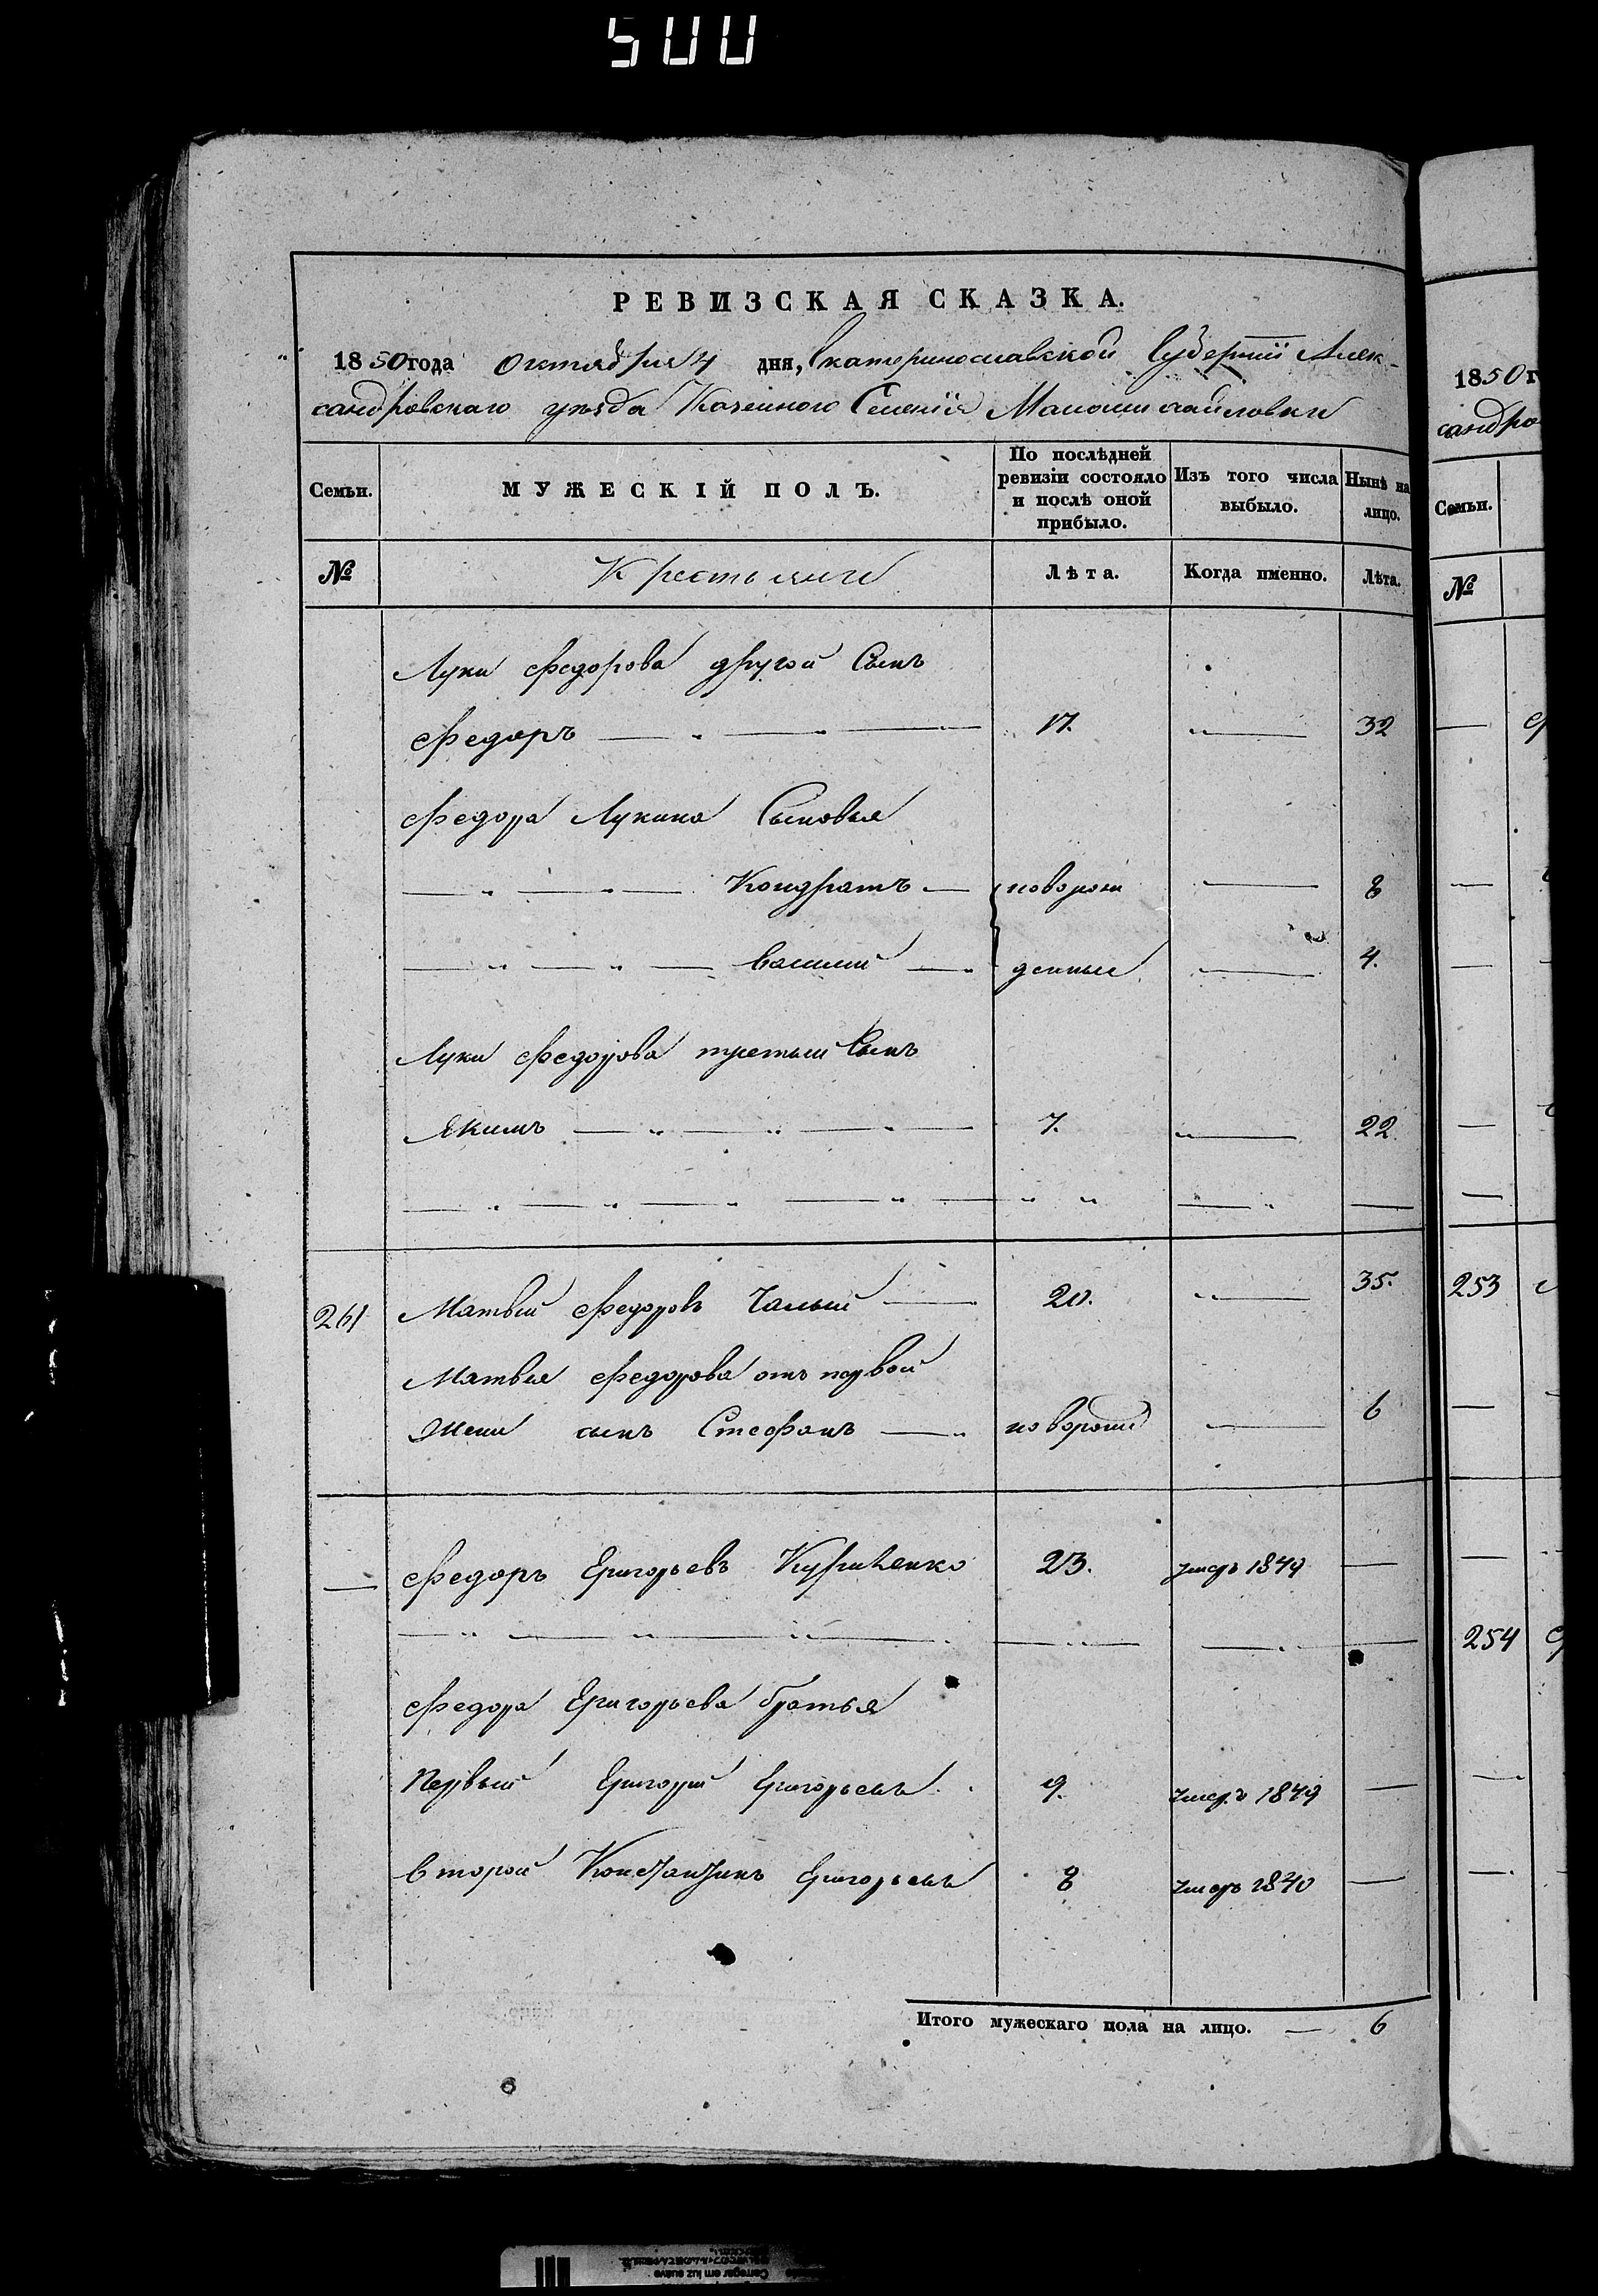 500
РЕВИЗСКАЯ СКАЗКА.
1850 года Октября 4 дня, Екатеринославской Губернии Алек-
сандровскаго уезда Казенного Селения
Семьи.
МУЖЕСКІЙ ПОЛЪ.
По послѣдней ревизіи состояло и послѣ оной прибыло.
Изъ того числа выбыло.
Нынѣ на лицо.
№
Крестьяне
Лѣта.
Когда именно.
Лѣта.
Луки Федорова другой Сынъ
Федоръ 17. 32
Федора Лукина Сыновья
Кондратъ новорож 8
Василий денные 4.
Луки Федорова третий Сынъ
Якимъ 7. 22
261 Матвей Федоровъ Чалый 20. 35.
Матвея Федорова отъ первой
жены сынъ Стефанъ новорож 6
Федоръ Григорьевъ 23. умеръ 1849
Федора Григорьева братья
Первый Григорий Григорьевъ 9. умеръ 1849
Второй Константинъ Григорьевъ 8 умеръ 1840
Итого мужескаго пола на лицо. 6
1850 г
сандро
Семьи.
№
253
254